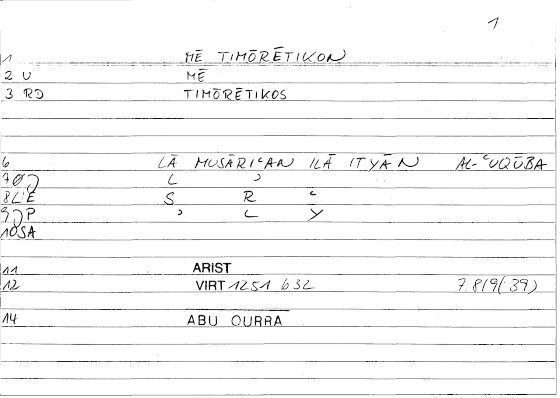 1
1 MĒ TIMŌRĒTIKON
2 U MĒ
3 RD TIMŌRĒTIKOS
6 LĀ MUSĀRIʿAN ILĀ ITYĀN AL-ʿUQŪBA
L ʾ
S R ʿ
ʾ L Y
10SA
11 ARIST
12 VIRT 1251 b32 7.8/9(39)
14 ABU QURRA